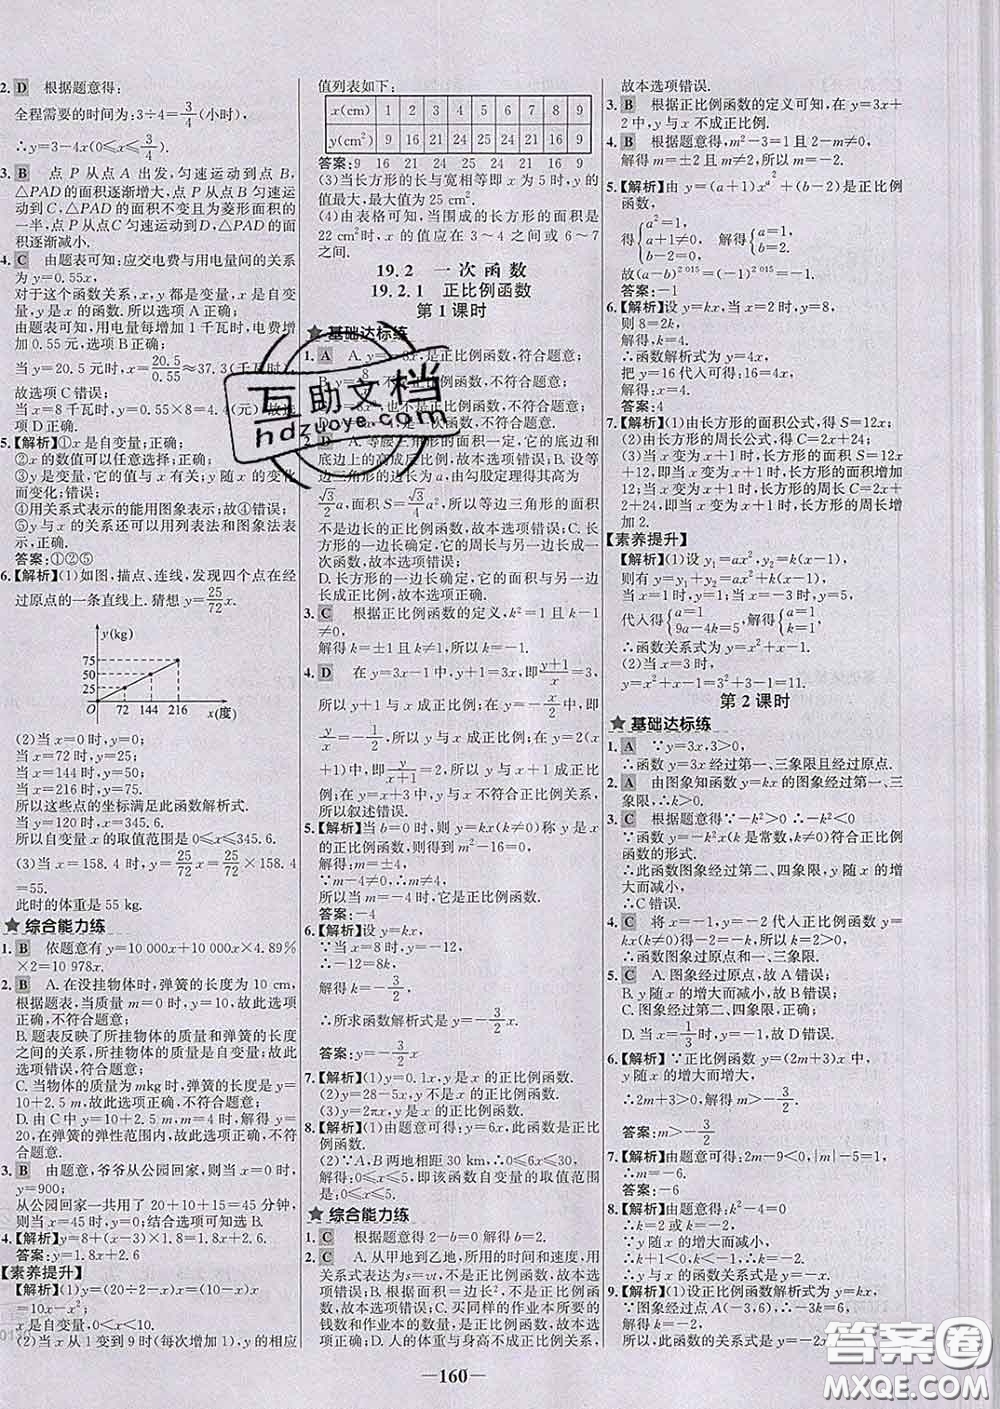 2. D 根据题意得:
全程需要的时间为:3÷4=3/4(小时)
∴y=3-4x(0≤x≤3/4).
3. B 点 P 从点 A 出发,匀速运动到点 B,
△PAD的面积逐渐增大,点 P 从点 B 匀速运
动到C,△PAD 的面积不变且为菱形面积的
一半,点 P 从点C 匀速运动到D,△PAD 的面
积逐渐减小.
4. C 由题表可知:应交电费与用电量间的关系
为 y=0.55x,
对于这个函数关系,x,y 都是变量,x 是自变
量,y 是 x 的函数.所以选项 A 正确;
由题表可知,用电量每增加 1 千瓦时,电费增
加 0.55 元,故选项 B 正确;
当 y=20.5 元时,x=20.5/0.55≈37.3(千瓦时)
故选项 C 错误;
当 x=8 千瓦时,y=0.55×8=4.4(元),故选
项 D 正确.
5.【解析】①x 是自变量;正确;
②x 的数值可以任意选择;正确;
③y 是变量,它的值与 x 有关;y 随 x 的变化
而变化;错误;
④用关系式表示的能用图象表示;故④错误;
⑤y 与 x 的关系还可以用列表法和图象法表
示,正确.
答案:①②⑤
6.【解析】(1)如图,描点、连线,发现四个点在经
过原点的一条直线上.猜想 y=25/72x.
y(kg)
75
50
25
O 72 144 216 x(度)
(2)当 x=0 时,y=0;
当 x=72 时,y=25;
当 x=144 时,y=50;
当 x=216 时,y=75.
所以这些点的坐标满足此函数解析式.
当 y=120 时,x=345.6.
所以自变量 x 的取值范围是 0≤x≤345.6.
(3)当 x=158.4 时,y=25/72x=25/72×158.4
=55.
此时的体重是 55 kg.
★ 综合能力练
1. B 依题意有 y=10 000x+10 000x×4.89%
×2=10 978x.
2. B A.在没挂物体时,弹簧的长度为 10 cm,
根据题表,当质量 m=0 时,y=10,故此选项
正确,不符合题意;
B.题表反映了所挂物体的质量和弹簧的长度
之间的关系,所挂物体的质量是自变量;故此
选项错误,符合题意;
C.当物体的质量为 mkg 时,弹簧的长度是 y=
10+2.5 m,故此选项正确,不符合题意;
D.由 C 中 y=10+2.5 m,m=4 时,解得 y=
20,在弹簧的弹性范围内,故此选项正确,不符
合题意.
3. B 由题意,爷爷从公园回家,则当 x=0 时,
y=900;
从公园回家一共用了 20+10+15=45 分钟,
则当 x=45 时,y=0;结合选项可知选 B.
4.【解析】y=8+(x-3)×1.8=1.8x+2.6
答案:y=1.8x+2.6
【素养提升】
【解析】(1)y=(20÷2-x)x=(10-x)x
=10x-x²;
x 是自变量,0<x<10.
(2)当 x 从 1 变到 9 时(每次增加 1),y 的相应
值列表如下:
x(cm) 1 2 3 4 5 6 7 8 9
y(cm²) 9 16 21 24 25 24 21 16 9
答案:9 16 21 24 25 24 21 16 9
(3)当长方形的长与宽相等即 x 为 5 时,y 的
值最大,最大值为 25 cm².
(4)由表格可知,当围成的长方形的面积是
22 cm² 时,x 的值应在 3～4 之间或 6～7
之间.
19.2 一次函数
19.2.1 正比例函数
第 1 课时
★ 基础达标练
1. A A.y=-8x,是正比例函数,符合题意;
不是正比例函数,不符合题意;
也不是正比例函数,不符合题意;
是一次函数,不符合题意.
2. D A.等腰三角形的面积一定,它的底边和
底边上的高成反比例,故本选项错误;B.设等
边三角形的边长为 a,由勾股定理得其高为
√3/2a,面积 S=√3/4a²,所以等边三角形的面积
不是边长的正比例函数,故本选项错误;C.长
方形的一边长确定,它的周长与另一边长成一
次函数,故本选项错误;
D.长方形的一边长确定,它的面积与另一边
长成正比例,故本选项正确.
3. C 根据正比例函数的定义,k²=1 且 k-1
≠0,解得 k=±1 且 k≠1,所以 k=-1.
4. D 在 y=3x-1 中,y+1=3x,即(y+1)/x=3,
所以 y+1 与 x 成正比例函数;在 y=-x/2 中,
y/x=-1/2,所以 y 与 x 成正比例;在 y=2(x
+1)中,即 y/(x+1)=2,所以 y 与 x+1 成正比例
函数;在 y=x+3 中,不符合正比例关系,
所以叙述错误.
5.【解析】当 b=0 时,则 y=kx(k≠0)称 y 是 x
的正比例函数,则得到 m²-16=0,
解得:m=±4,
∵m-4≠0,∴m≠4,
所以当 m=-4 时,y 是 x 的正比例函数.
答案:-4
6.【解析】设 y=kx,
∵当 x=8 时,y=-12,
∴-12=8k,
解得 k=-3/2,
∴所求函数解析式是 y=-3/2x.
答案:y=-3/2x
7.【解析】(1)y=0.1x,y 是 x 的正比例函数.
(2)y=28-5x,y 不是 x 的正比例函数.
(3)y=2πx,y 是 x 的正比例函数.
8.【解析】(1)由题意可得:y=6x,此函数是正比
例函数.
(2)∵A,B 两地相距 30 km,∴0≤6x≤30,
解得:0≤x≤5,即该函数自变量的取值范围
是:0≤x≤5.
★ 综合能力练
1. C 根据题意 2-b=0 解得 b=2.
2. C A.从甲地到乙地,所用的时间和速度,用
关系式表达为s=vt,不是正比例函数,故本选
项错误;B.根据面积=边长²,不是正比例函
数,故本选项错误;C.买同样的作业本所要的
钱数和作业本的数量,是正比例函数,故本选
项正确;D.人的体重与身高不成正比例关系,
故本选项错误.
3. B 根据正比例函数的定义可知,在 y=3x+
2 中,y 与 x 不成正比例.
4. B 根据题意得:m²-3=1 且 2-m≠0,
解得 m=±2 且 m≠2,所以 m=-2.
5.【解析】由 y=(a+1)x^(a²)+(b-2)是正比例
函数,
得{a²=1 a+1≠0 b-2=0 解得{a=1 b=2.
故(a-b)^2 015=(1-2)^2 015=-1.
答案:-1
6.【解析】设 y=kx,当 x=2 时,y=8,
则 8=2k,
解得,k=4.
∴函数解析式为 y=4x,
把 y=16 代入可得:16=4x,
解得,x=4.
答案:4
7.【解析】(1)由长方形的面积公式,得 S=12x;
(2)由长方形的周长公式,得 C=2x+24;
(3)当 x 变为 x+1 时,长方形的面积 S=
12(x+1)=12x+12,即长方形的面积增加
12;当 x 变为 x+1 时,长方形的周长 C=2x+
2+24,即当 x 变为 x+1 时,长方形的周长增
加 2.
【素养提升】
【解析】(1)设 y₁=ax²,y₂=k(x-1),
则有 y=y₁+y₂=ax²+k(x-1),
当 x=1 时,y=1;当 x=-3 时,y=5,
代入得{a=1 9a-4k=5, 解得{a=1 k=1.
∴函数关系式为 y=x²+x-1.
(2)当 x=3 时,
y=x²+x-1=3²+3-1=11.
第 2 课时
★ 基础达标练
1. A ∵y=3x,3>0,
∴函数 y=3x 经过第一、三象限且经过原点.
2. A 由图象知函数 y=kx 的图象经过第一、三
象限,∴k>0.
3. C 根据题意得∵-k²≠0 ∴-k²<0
∵函数 y=-k²x(k 是常数,k≠0)符合正比例
函数的形式.
∴此函数图象经过第二、四象限,y 随 x 的增
大而减小,
∴C错误.
4. C 将 x=-1,y=-2 代入正比例函数 y=
kx(k≠0)得,-2=-k,解得:k=2>0,
∴函数的图象经过原点和一、三象限.
5. C A.图象经过原点,故 A 错误;
B.y 随 x 的增大而减小,故 B 错误;
C.图象经过第二、四象限,故 C 正确;
D.当 x=1/3 时,y=-1,故 D 错误.
6.【解析】∵正比例函数 y=(2m+3)x 中,
y 随 x 的增大而增大,
∴2m+3>0,解得 m>-3/2.
答案:m>-3/2
7.【解析】由题意可得:2m-9<0,|m|-5=1,
∴m=-6.
答案:-6
8.【解析】由题意得:k²-4=0
∴k=2 或 k=-2
∴y 与 x 的函数关系式是 y=
9.【解析】(1)设正比例函数解析式为 y=kx,
∵图象经过点 A(-3,6),∴6=-3k,k=-2,
所以,此函数的关系式是 y=-2x.
—160—
互助文档
hdzuoye.com
答案圈
MXQE.COM